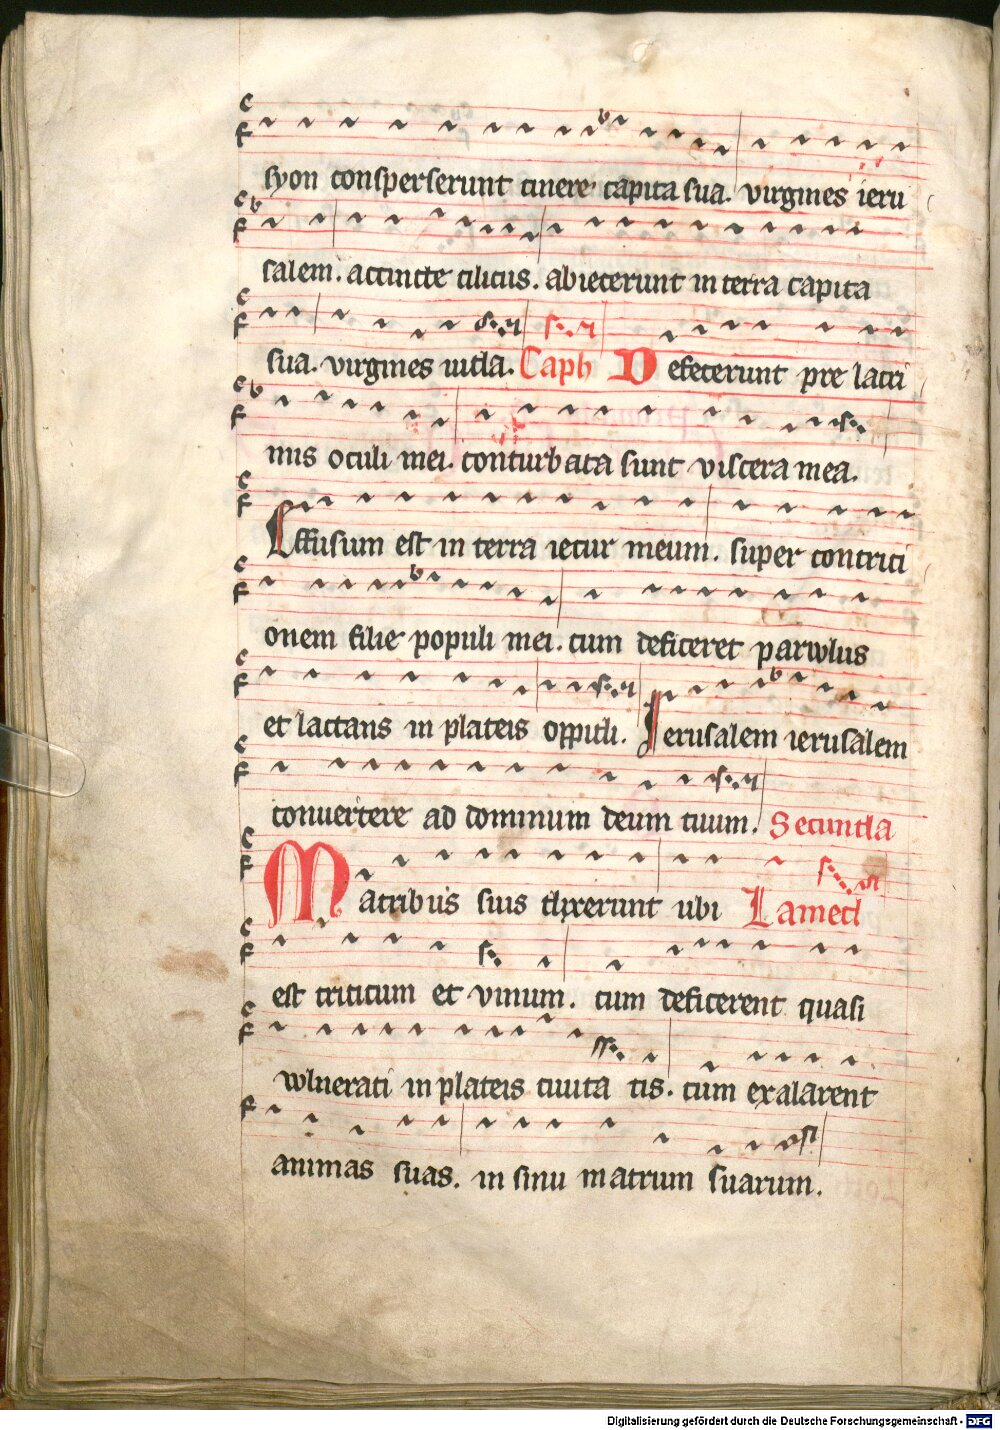 syon consperserunt cinere capita sua. virgines ieru
salem. accincte ciliciis. abiecerunt in terra capita
sua. virgines iuda. Caph Defecerunt pre lacri
mis oculi mei. conturbata sunt viscera mea.
Effusum est in terra iecur meum. super contriti
onem filie populi mei. cum deficeret parwlus
et lactans in plateis oppidi. Ierusalem ierusalem
convertere ad dominum deum tuum. Secunda
Matribus suis dixerunt ubi Lamed
est triticum et vinum. cum deficerent quasi
wlnerati in plateis civita tis. cum exalarent
animas suas. in sinu matrum suarum.
Digitalisierung gefördert durch die Deutsche Forschungsgemeinschaft - DFG